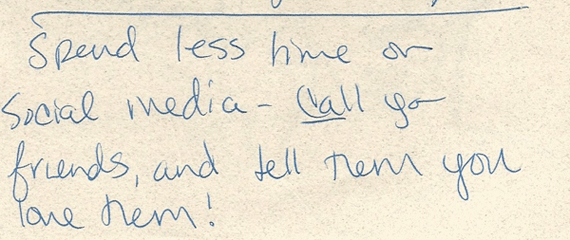 Spend less time on
Social media - Call your
friends, and tell them you
love them!